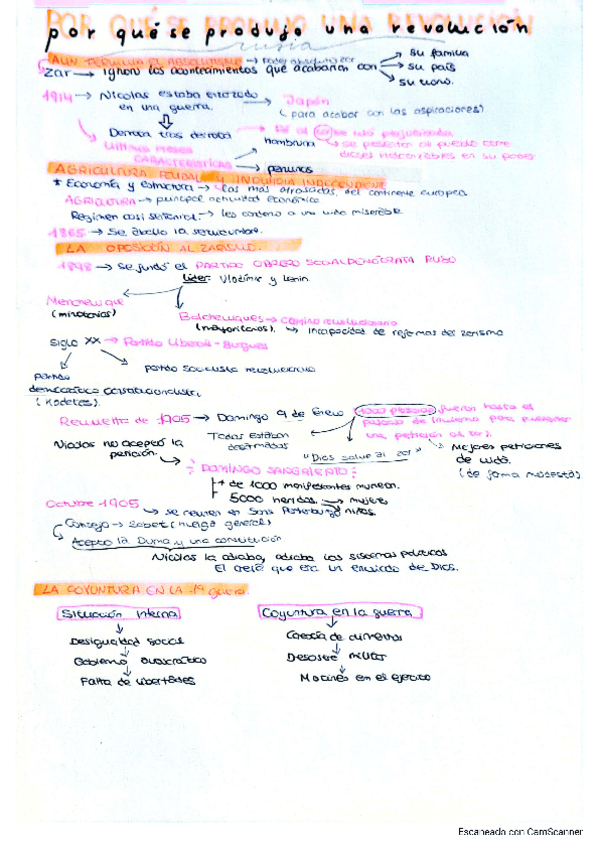 por qué se produjo una revolución
rusia
AUN TENIENDO EL ABSOLUTISMO → Poder absoluto zar → su familia
zar → ignoró los acontecimientos que acabarían con → su país
→ su trono.
1914 → Nicolas estaba enzozado en una guerra. → Japón (para acabar con las aspiraciones)
Derrota tras derrota
últimos meses
CARACTERÍSTICAS → hambruna
→ penurias
AGRICULTURA FEUDAL Y INDUSTRIA
* Economía y estructura → las más atrasadas, del continente europeo
AGRICULTURA → principal actividad económica
Régimen casi → les condenó a una vida miserable
1865 → Se abolió la servidumbre.
LA OPOSICIÓN AL ZARISMO.
1898 → se fundó el PARTIDO OBRERO SOCIALDEMÓCRATA RUSO
líder: Vladimir y Lenin.
Menchevique (minoritarios)
Bolcheviques → camino revolucionario
(mayoritarios). → Incapacidad de reformas del zarismo
Siglo XX → Partido Liberal - Burgues
partido socialista revolucionario
partido democratico constitucionalista
(Kadetes).
Revuelta de 1905 → Domingo 9 de Enero → fueron hasta el palacio de invierno para
una petición al zar.
Nicolas no aceptó la petición.
Todos estaban desarmados
"Dios salve al zar"
Mejores peticiones de vida.
(de forma modesta)
DOMINGO SANGRIENTO:
+ de 1000 manifestantes mueren.
5000 heridos. → mujeres
niños.
Octubre 1905 → se reunen en Sant Petersburgo
Consejo → Soviet (huelga general)
Acepto la Duma y una constitución
Nicolas la odiaba, odiaba los sistemas políticos
El creía que era un enviado de Dios.
LA COYUNTURA EN LA 1ª guerra.
Situación interna
Desigualdad social
Gobierno autocratico
Falta de libertades
Coyuntura en la guerra
Carestía de alimentos
Desastre militar
Motines en el ejercito
Escaneado con CamScanner